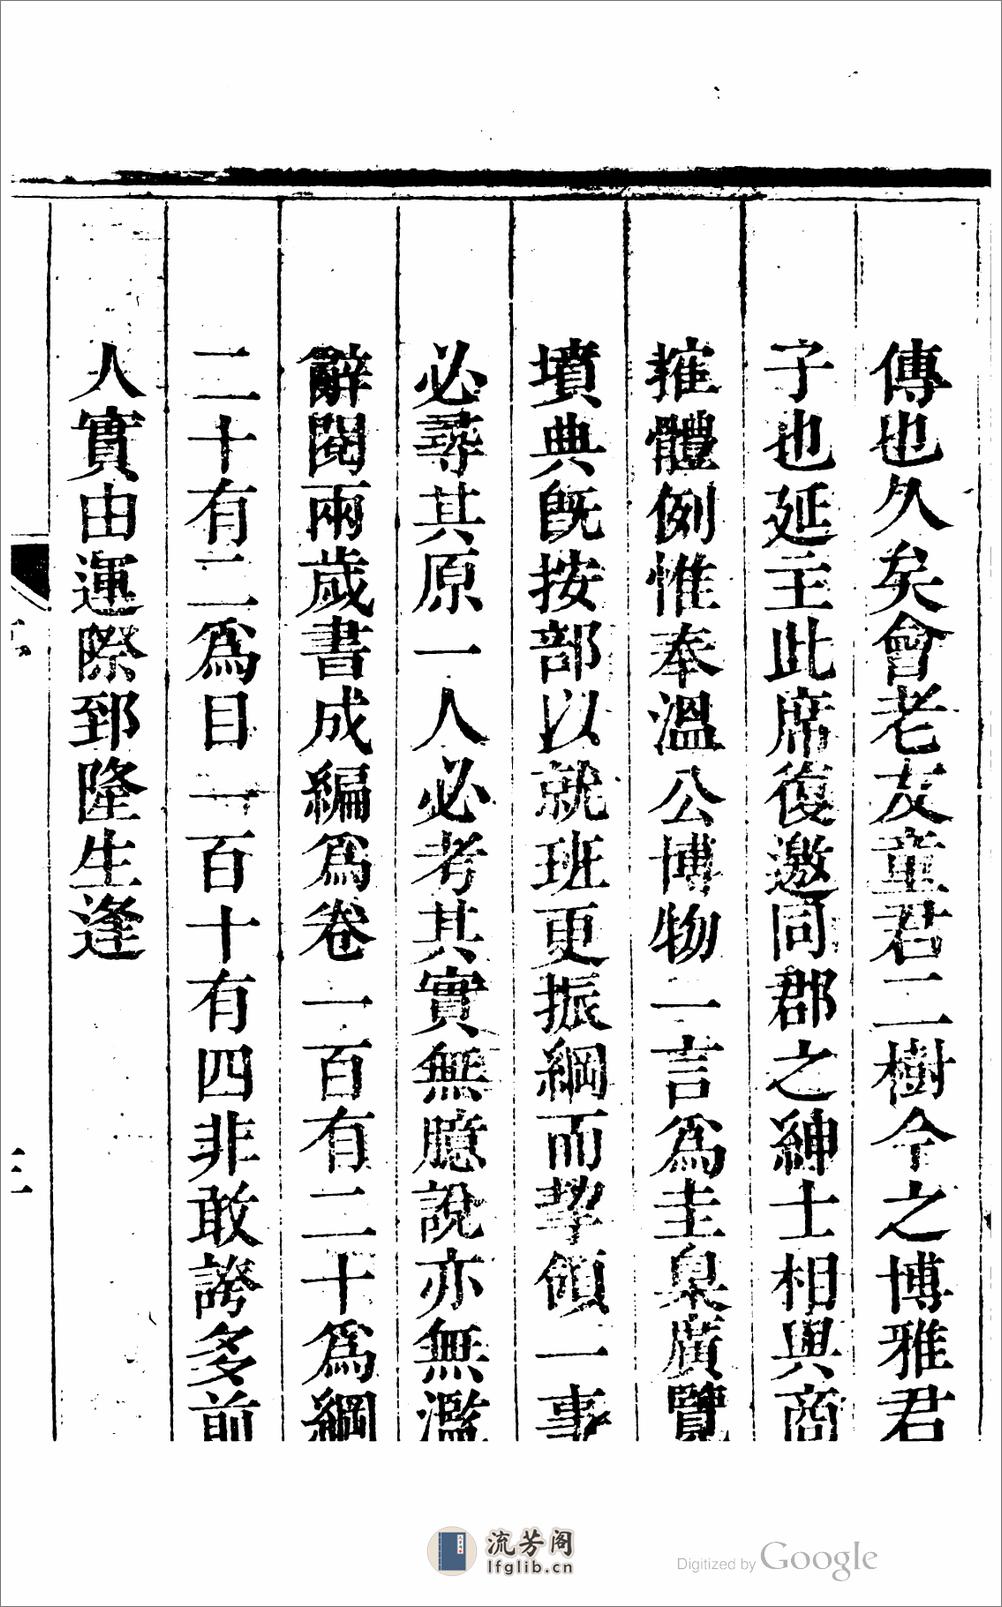 傳也久矣會老友童君二樹今之博雅君
子也延主此席復邀同郡之紳士相與商
搉體例惟奉溫公博物一言爲圭臬廣覽
墳典旣按部以就班更振綱而挈領一事
必尋其原一人必考其實無臆說亦無濫
辭閱兩歲書成編爲卷一百有二十爲綱
二十有二爲目一百十有四非敢誇多前
人實由運際郅隆生逢
三
流芳阁
lfglib.cn
Digitized by Google